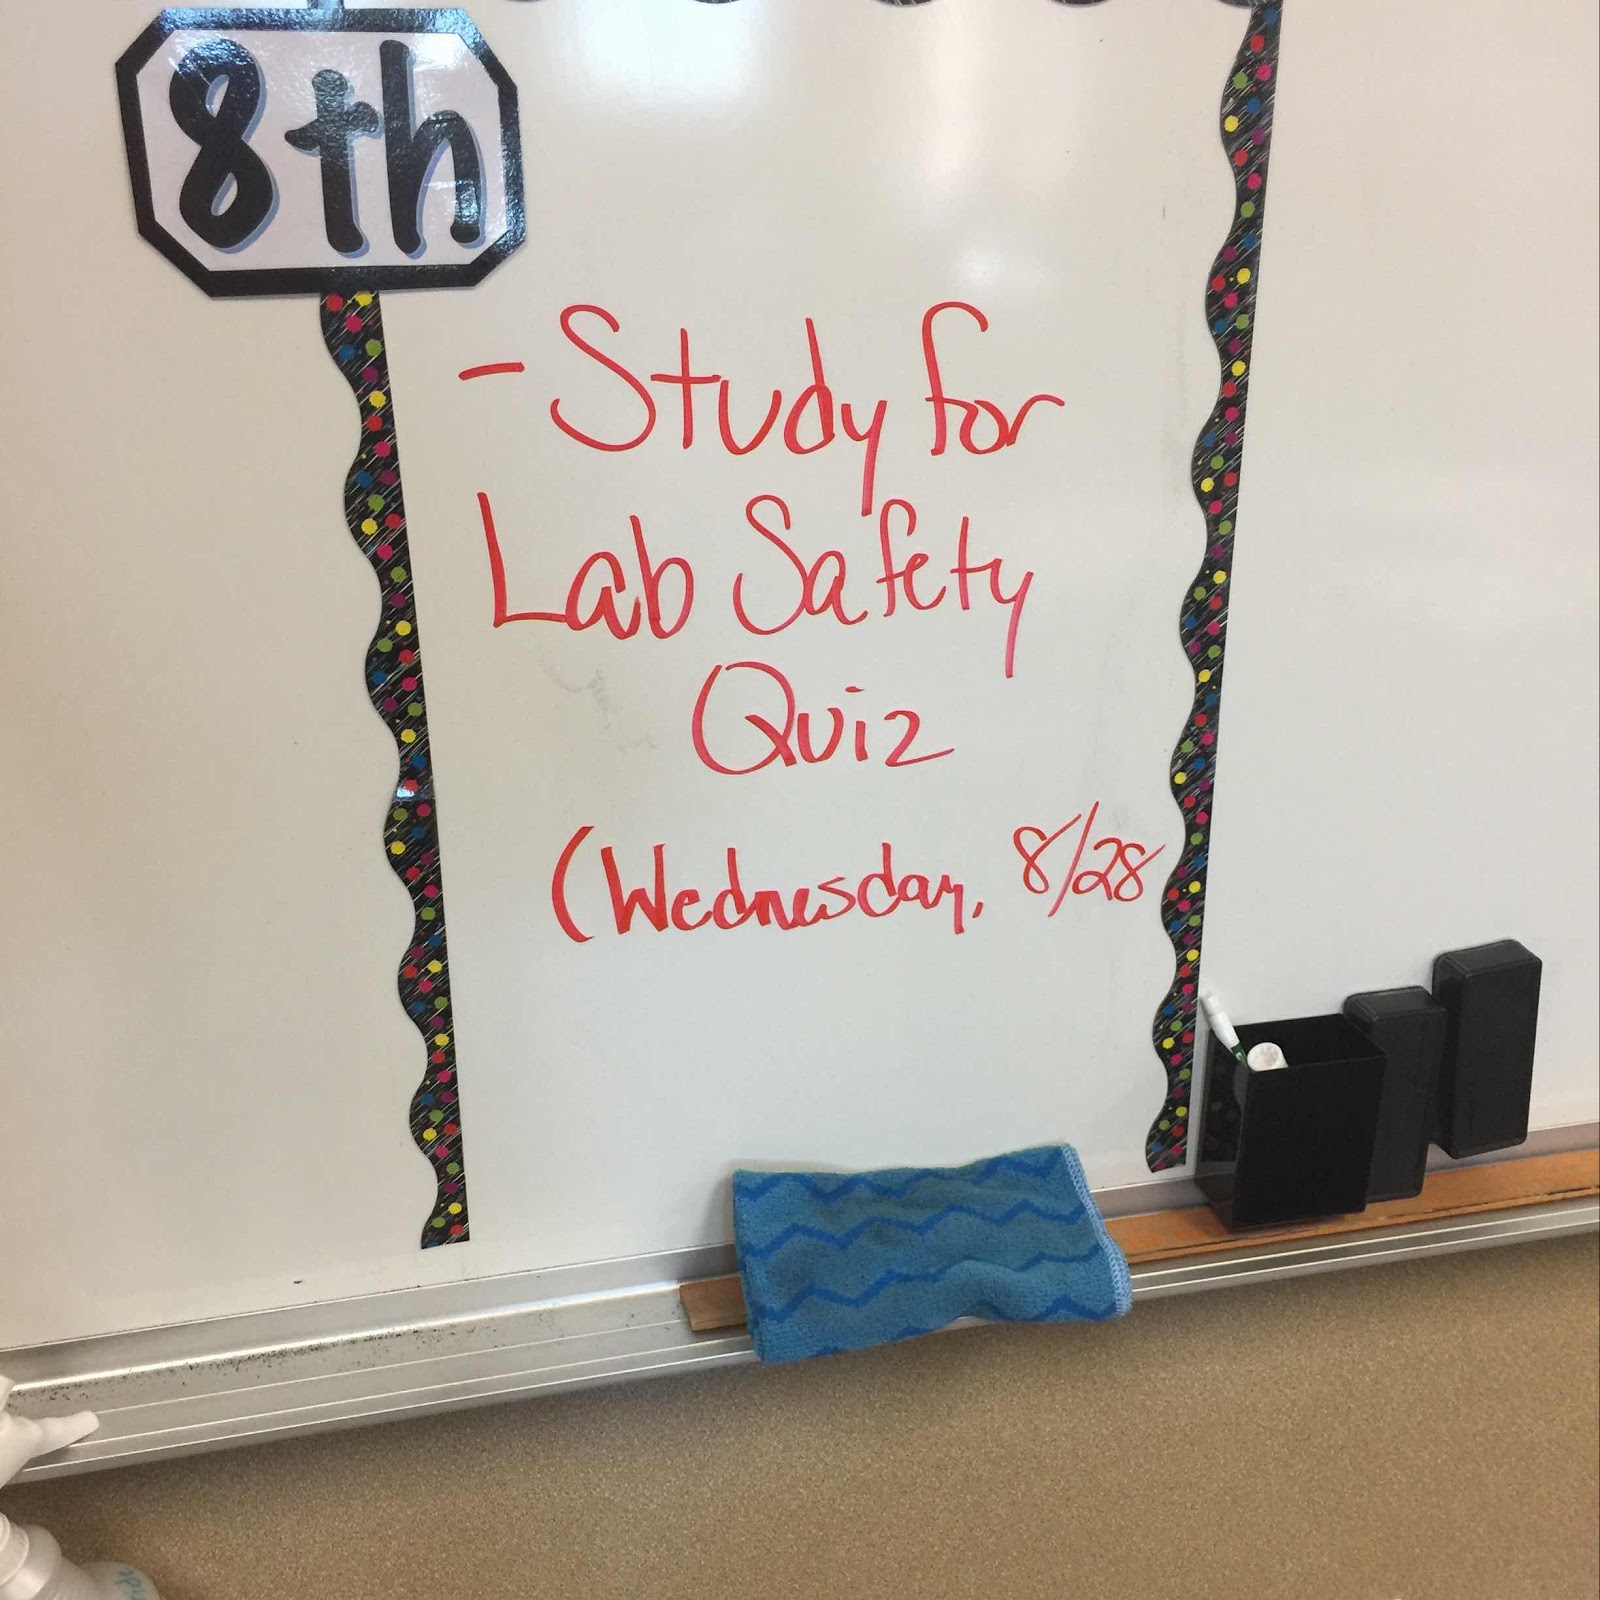 8th
- Study for
Lab Safety
Quiz
(Wednesday, 8/28